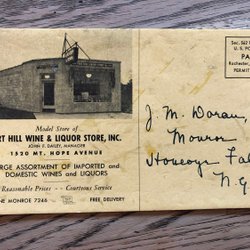 Model Store of
RT HILL WINE & LIQUOR STORE, INC.
JOHN F. DAILEY, MANAGER
1520 MT. HOPE AVENUE
RGE ASSORTMENT OF IMPORTED and
DOMESTIC WINES and LIQUORS
Reasonable Prices -- Courteous Service
NE MONROE 7246 FREE DELIVERY
Sec. 562
U. S. PO
PA
Rochester,
PERMIT
J. M. Doran,
Monroe
Honeoye Fal
N. Y.